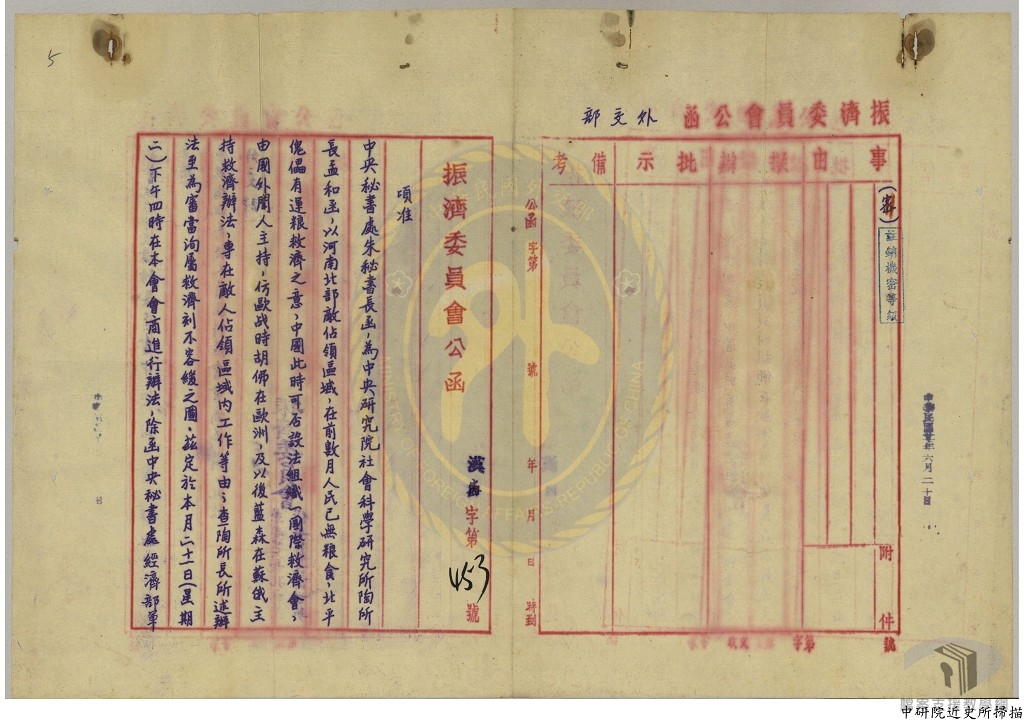 5
振濟委員會公函 外交部
事由
擬辦
批示
備考
(密)
註銷機密等級
附件
號
公函 字第 號
年 月 日 時到
六月二十日
振濟委員會公函
漢 字第453號
頃准
中央秘書處朱秘書長函，為中央研究院社會科學研究所陶所
長孟和函，以河南北部敵佔領區域，在前數月人民已無糧食，北平
傀儡有運糧救濟之意，中國此時可否設法組織一國際救濟會，
由國外聞人主持，仿歐戰時胡佛在歐洲，及以後藍森在蘇俄主
持救濟辦法，專在敵人佔領區域內工作等由；查陶所長所述辦
法至為審當洵屬救濟刻不容緩之圖，茲定於本月二十一日(星期
二)下午四時在本會會商進行辦法，除函中央秘書處經濟部軍
中研院近史所掃描